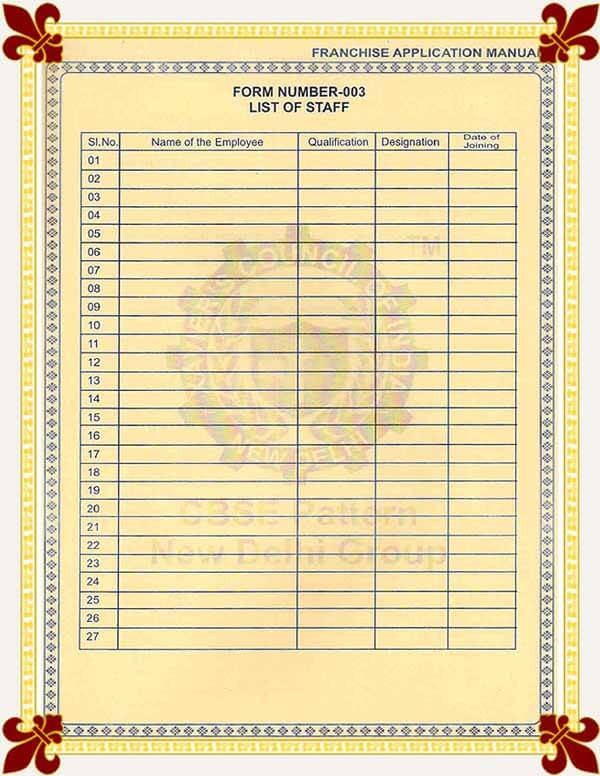 FRANCHISE APPLICATION MANUA
FORM NUMBER-003
LIST OF STAFF
Sl.No. Name of the Employee Qualification Designation Date of Joining
01
02
03
04
05
06
07
08
09
10
11
12
13
14
15
16
17
18
19
20
21
22
23
24
25
26
27
TM
COUNCIL OF INDIA
NEW DELHI
CBSE Pattern
New Delhi Group